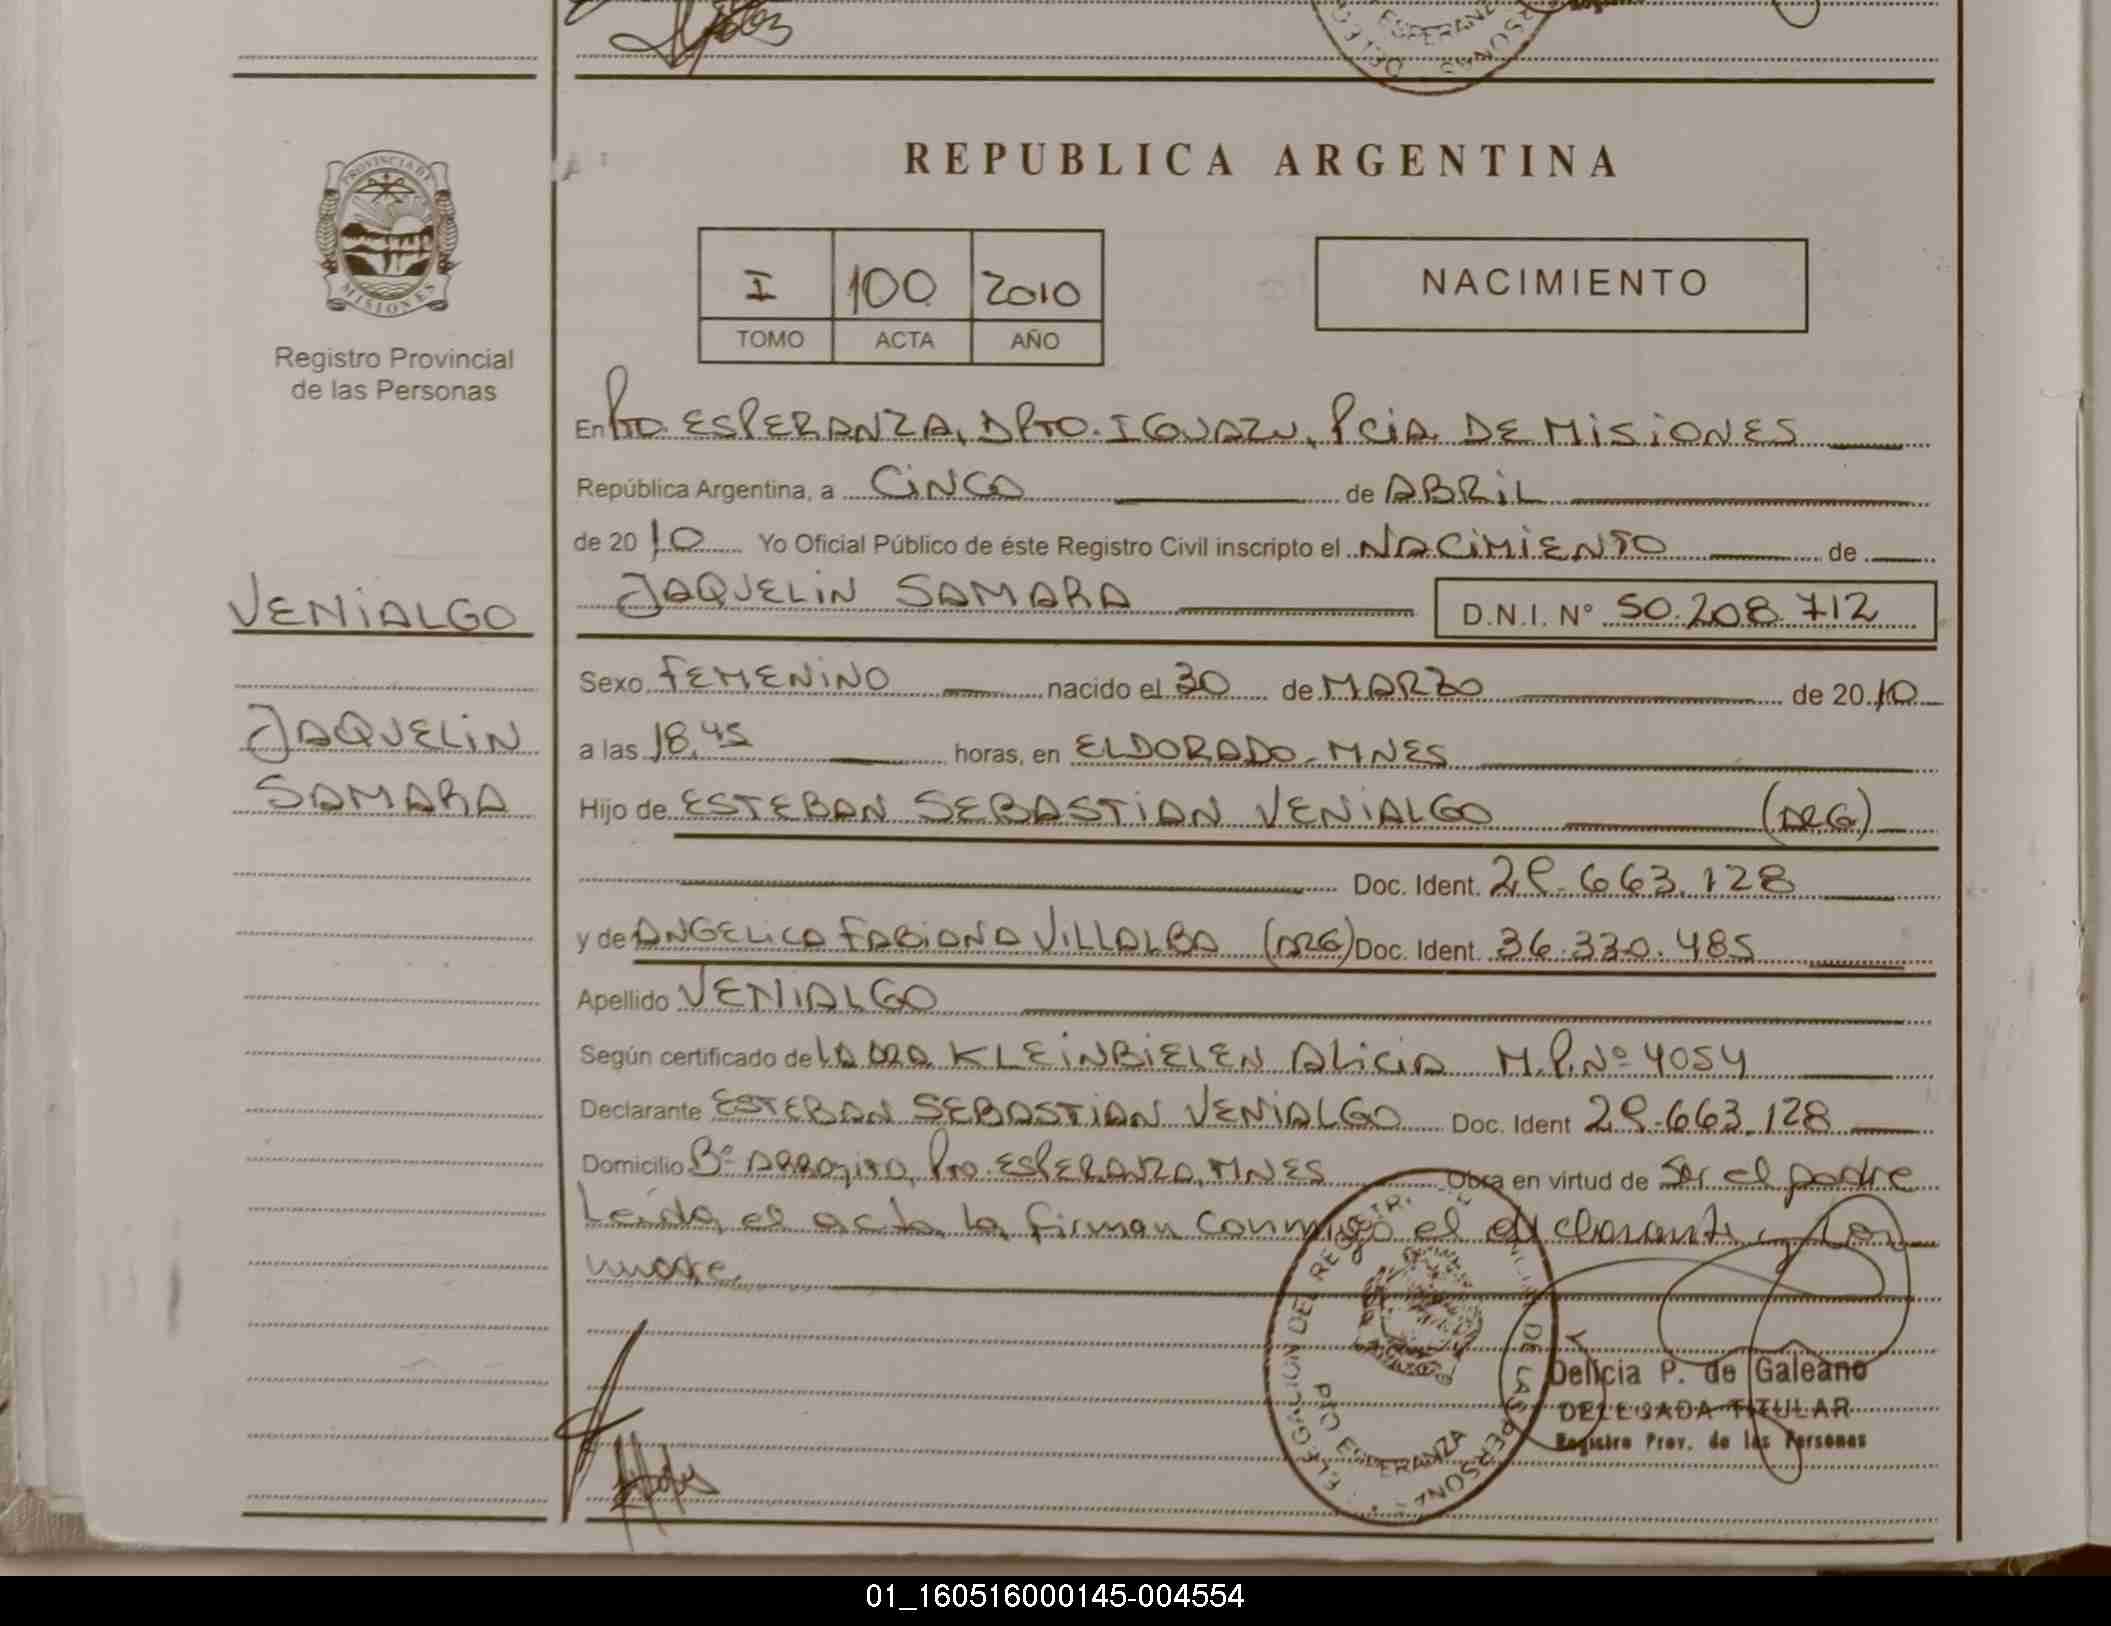 PROVINCIA DE
MISIONES
Registro Provincial
de las Personas
VENIALGO
JAQUELIN
SAMARA
REPUBLICA ARGENTINA
I 100 2010
TOMO ACTA AÑO
NACIMIENTO
En Pto. ESPERANZA, DPTO. IGUAZU, PciA. DE MISIONES
República Argentina, a CINCO de ABRIL
de 2010 Yo Oficial Público de éste Registro Civil inscripto el NACIMIENTO de
JAQUELIN SAMARA D.N.I. N° 50.208.712
Sexo FEMENINO nacido el 30 de MARZO de 2010
a las 18.45 horas, en ELDORADO - MNES
Hijo de ESTEBAN SEBASTIAN VENIALGO (ARG)
Doc. Ident. 29.663.128
y de ANGELICA FABIANA VILLALBA (ARG) Doc. Ident. 36.330.485
Apellido VENIALGO
Según certificado de LA DRA KLEINBIELEN ALICIA M.P.N° 4054
Declarante ESTEBAN SEBASTIAN VENIALGO Doc. Ident 29.663.128
Domicilio B° ARROYITO, Pto. ESPERANZA, MNES Obra en virtud de Ser el padre
Leída el acta la firman conmigo el declarante y la
madre
Delicia P. de Galeano
DELEGADA TITULAR
Registro Prov. de las Personas
01_160516000145-004554